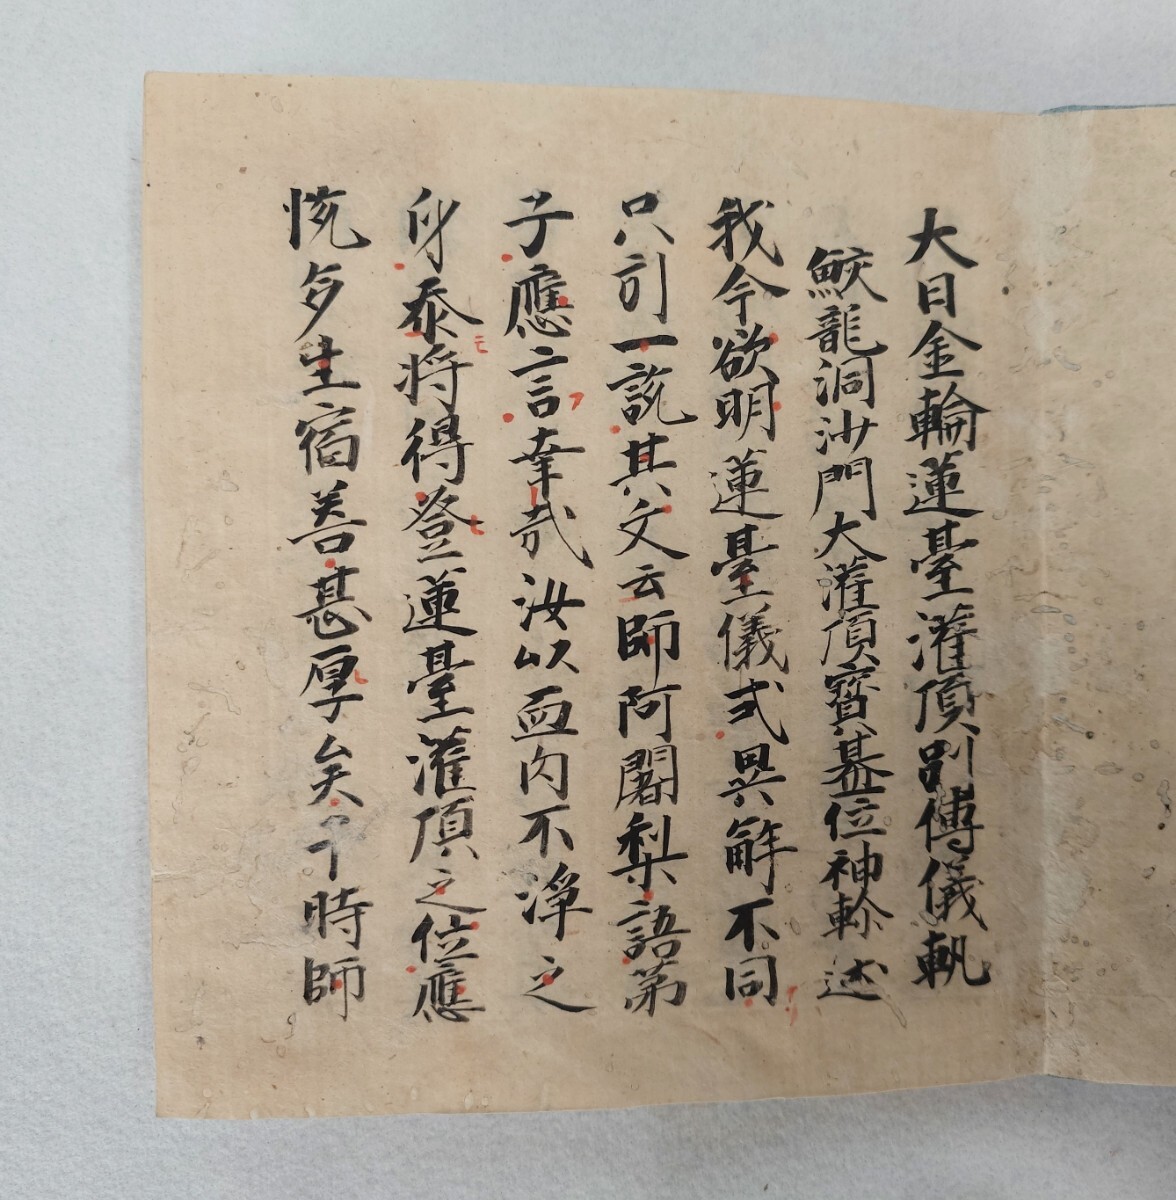 大日金輪蓮臺灌頂別傳儀軌
鮫龍洞沙門大灌頂寶基位神軫述
我今欲明蓮臺儀式異解不同
只引一説其文云師阿闍梨語第
子應言幸哉汝以血肉不淨之
身忝將得登蓮臺灌頂之位應
悦多生宿善甚厚矣于時師